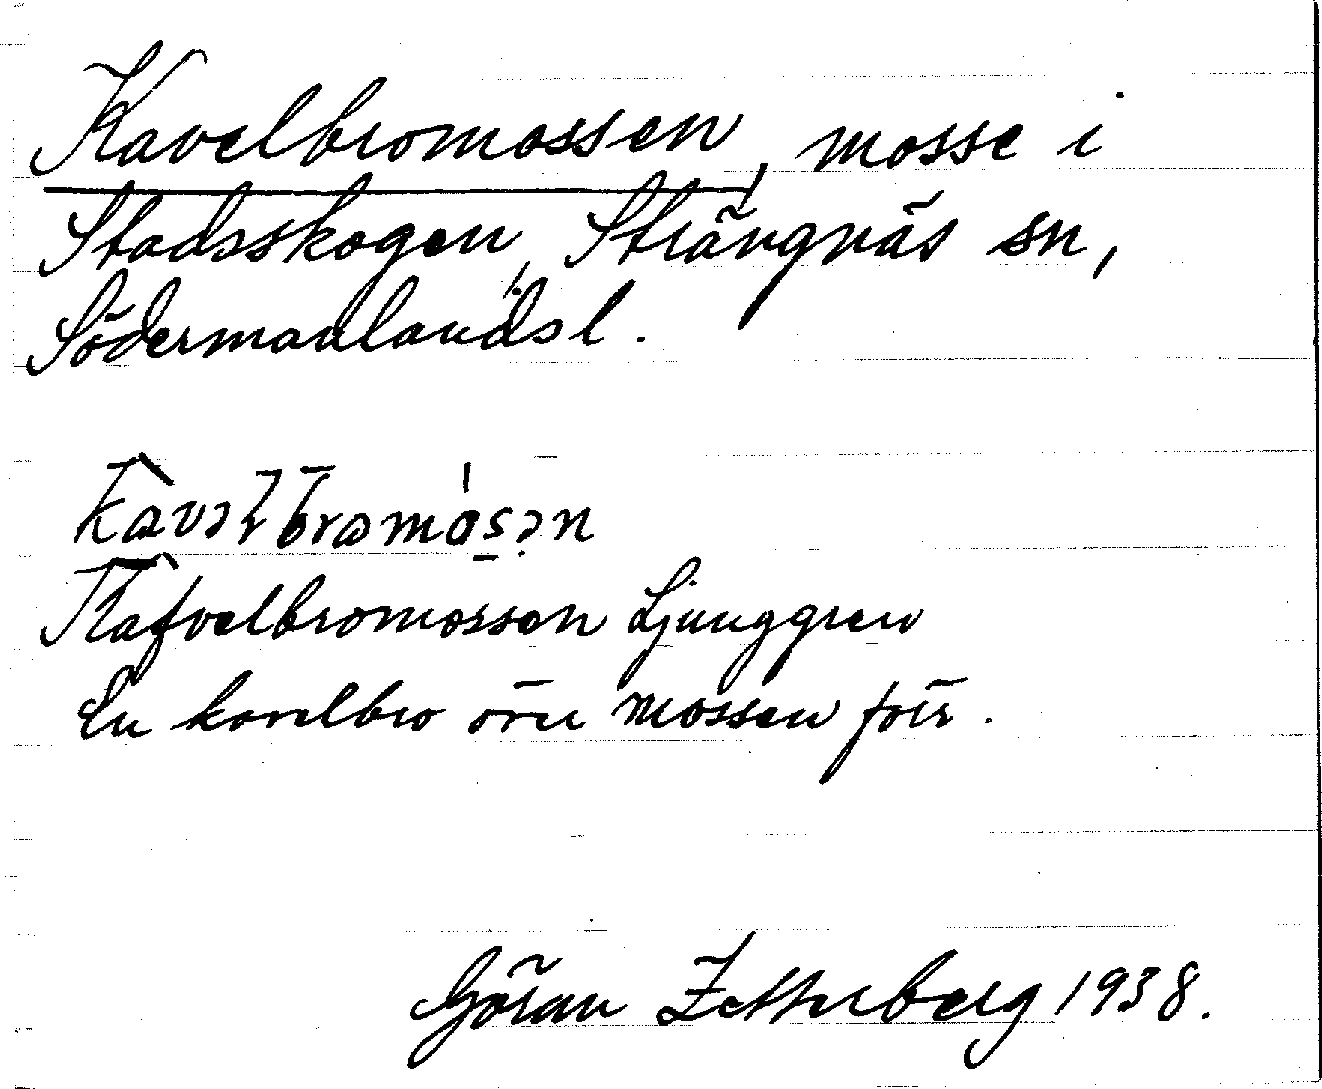 Kavelbromossen, mosse i
Stadsskogen, Strängnäs sn,
Södermanlands l.
kavəlbromosən
Kafvelbromossen Ljunggren
En kavelbro över mossen förr.
Göran Zetterberg 1938.